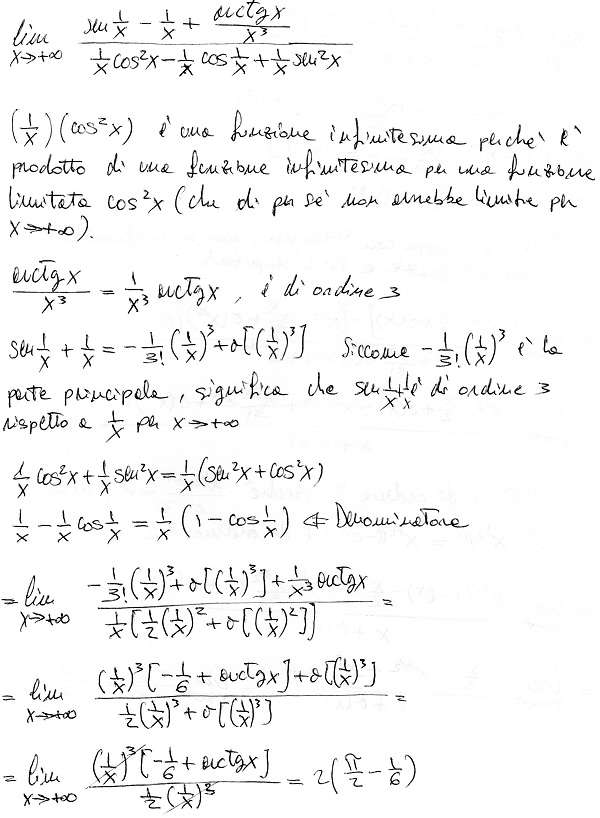 lim x→+∞ (sen 1/x − 1/x + arctg x / x³) / (1/x cos²x − 1/x cos 1/x + 1/x sen²x)
(1/x)(cos²x) è una funzione infinitesima perchè è
prodotto di una funzione infinitesima per una funzione
limitata cos²x (che di per sé non avrebbe limite per
x→+∞).
arctg x / x³ = 1/x³ arctg x , è di ordine 3
sen 1/x + 1/x = −1/3! (1/x)³ + o[(1/x)³] Siccome −1/3! (1/x)³ è la
parte principale, significa che sen 1/x + 1/x è di ordine 3
rispetto a 1/x per x→+∞
1/x cos²x + 1/x sen²x = 1/x (sen²x + cos²x)
1/x − 1/x cos 1/x = 1/x (1 − cos 1/x) ⇐ Denominatore
= lim x→+∞ (−1/3! (1/x)³ + o[(1/x)³] + 1/x³ arctg x) / (1/x [1/2 (1/x)² + o[(1/x)²]]) =
= lim x→+∞ ((1/x)³ [−1/6 + arctg x] + o[(1/x)³]) / (1/2 (1/x)³ + o[(1/x)³]) =
= lim x→+∞ ((1/x)³ [−1/6 + arctg x]) / (1/2 (1/x)³) = 2(π/2 − 1/6)